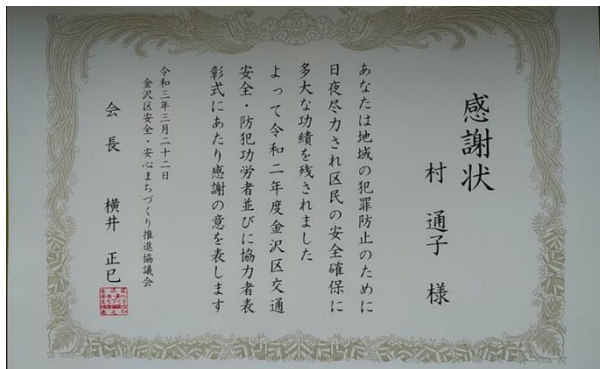 感謝状
村 通子 様
あなたは地域の犯罪防止のために
日夜尽力され区民の安全確保に
多大な功績を残されました
よって令和二年度金沢区交通
安全・防犯功労者並びに協力者表
彰式にあたり感謝の意を表します
令和三年三月二十二日
金沢区安全・安心まちづくり推進協議会
会長 横井 正巳